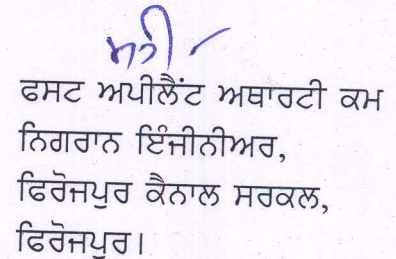 ਫਸਟ ਅਪੀਲੈਂਟ ਅਥਾਰਟੀ ਕਮ
ਨਿਗਰਾਨ ਇੰਜੀਨੀਅਰ,
ਫਿਰੋਜਪੁਰ ਕੈਨਾਲ ਸਰਕਲ,
ਫਿਰੋਜਪੁਰ।